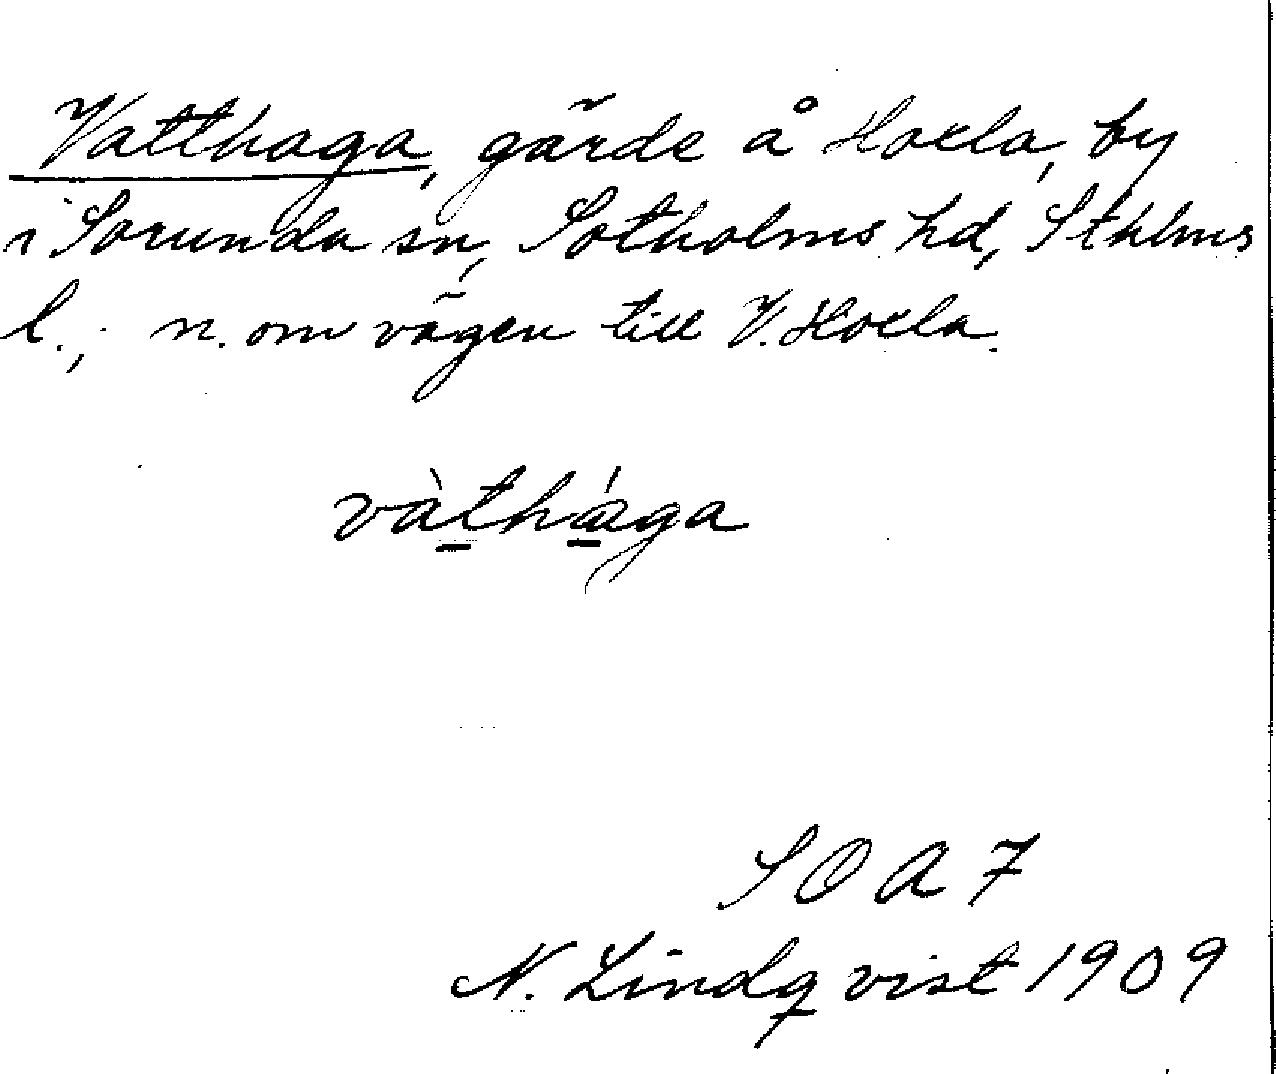 Vatthaga, gärde å Hoxla, by
i Sorunda sn, Sotholms hd, Sthlms
l.; n. om vägen till V. Hoxla.
vàthága
SOA 7
N. Lindqvist 1909